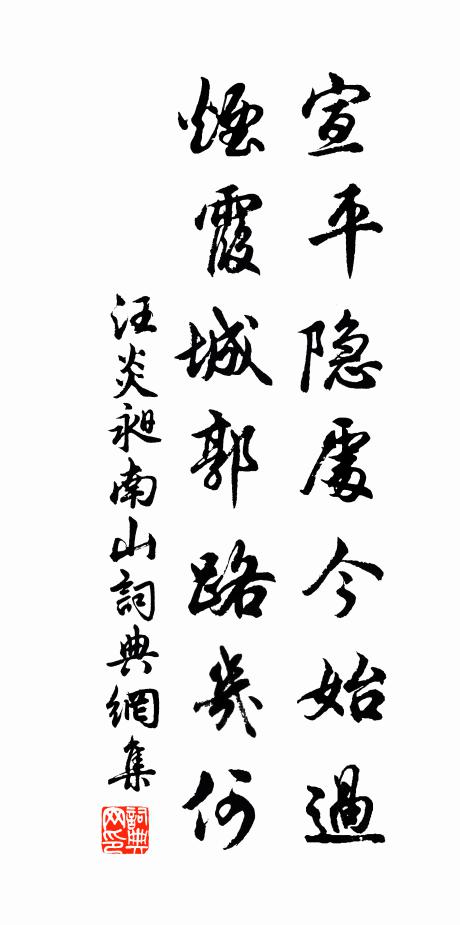 宣平隐處今始過
煙霞城郭路幾何
汪炎昶南山詞典網集
詞典网印